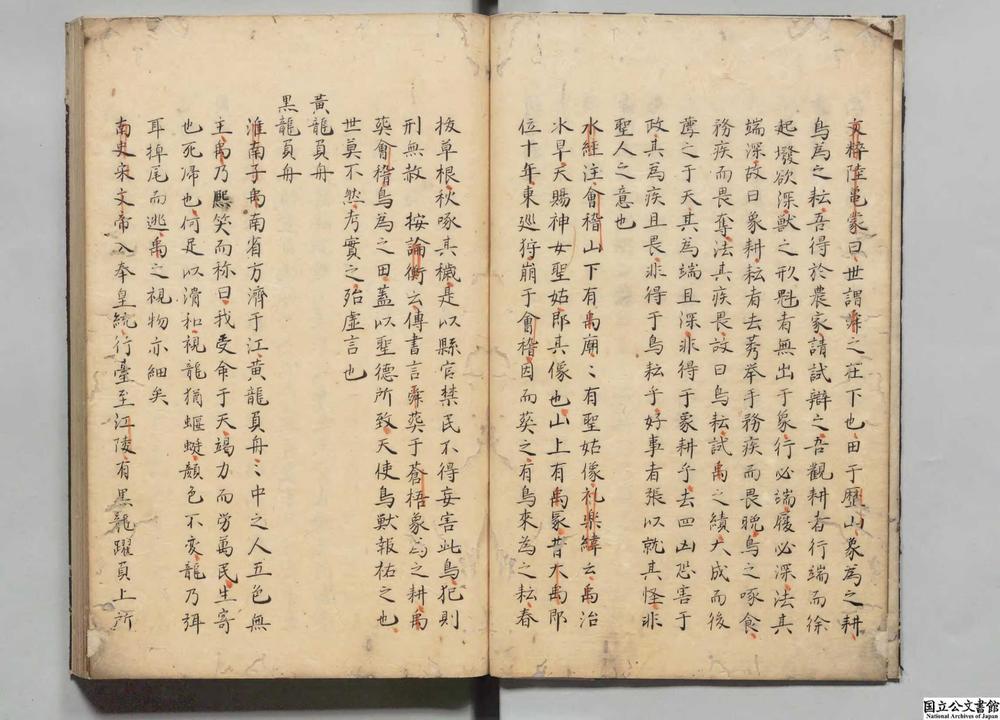 文粹陸龜蒙曰世謂舜之在下也田于歷山象為之耕
鳥為之耘吾得於農家請試辯之吾觀耕者行端而徐
起墢欲深獸之形魁者無出于象行必端履必深法其
端深故曰象耕耘者去莠举手務疾而畏晚鳥之啄食
務疾而畏奪法其疾畏故曰鳥耘試禹之績大成而後
薦之于天其為端且深非得于象耕乎去四凶恐害于
政其為疾且畏非得于鳥耘乎好事者張以就其怪非
聖人之意也
水經注會稽山下有禹廟〻有聖姑像礼樂緯云禹治
水旱天賜神女聖姑即其像也山上有禹冢昔大禹即
位十年東廵狩崩于會稽因而葬之有鳥來為之耘春
拔草根秋啄其穢是以縣官禁民不得妄害此鳥犯則
刑無赦　按論衡云傳書言舜葬于蒼梧象為之耕禹
葬會稽鳥為之田蓋以聖德所致天使鳥獸報祐之也
世莫不然考實之殆虚言也
黄龍負舟
黒龍負舟
淮南子禹南省方濟于江黄龍負舟〻中之人五色無
主禹乃熈笑而称曰我受命于天竭力而労萬民生寄
也死帰也何足以滑和視龍猶蝘蜓顔色不変龍乃弭
耳掉尾而逃禹之視物亦細矣
南史宋文帝入奉皇統行臺至江陵有黒龍躍負上所
国立公文書館
National Archives of Japan